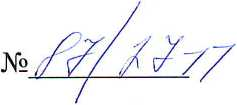 № 87/2711